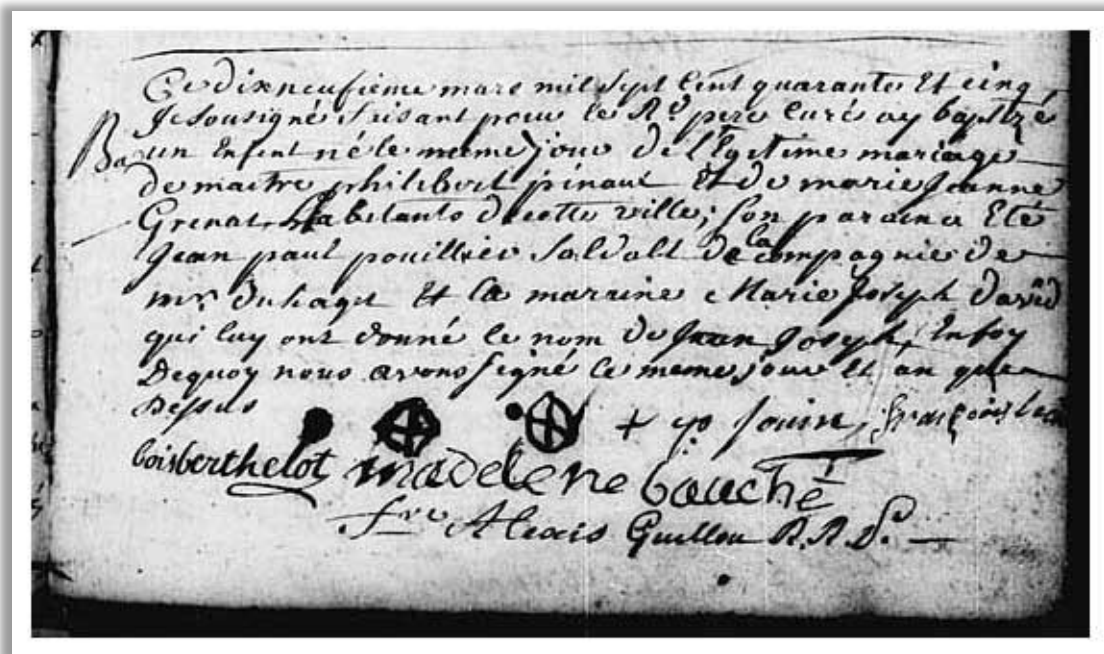 Ce dixneufieme mars mil sept cent quarante Et cinq
Je sousigné faisant pour le Rd pere curé ay baptizé
Ba un Enfent né le meme jour de legitime mariage
de maitre philibert pinaut Et de marie Jeanne
Grenat habitants de cette ville; son parain a Eté
Jean paul pouillier soldast de la compagnie de
mr. duhaget Et la marrine Marie Joseph david
qui luy ont donné le nom de Jean Joseph, Enfoy
dequoy nous avons signé le meme jour Et an que
dessus + jouin, françois
boisberthelot madelene bauché
fre Alexis Guillou R.R.